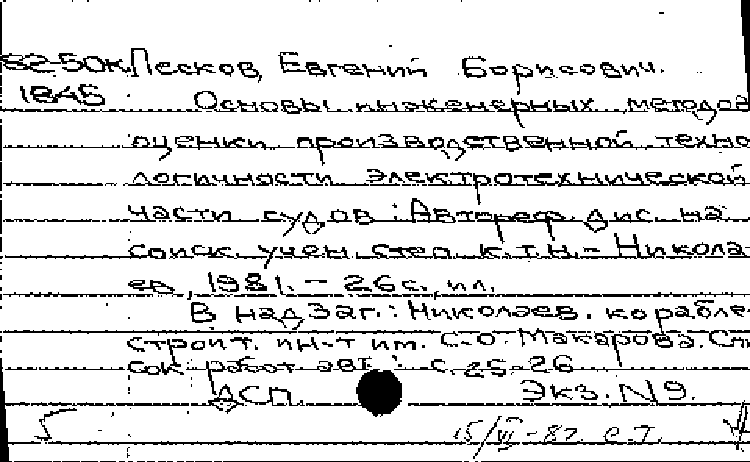 82-50к Песков, Евгений Борисович.
1845 Основы инженерных методов
оценки производственной техно
логичности электротехнической
части судов : Автореф. дис. на
соиск. учен. степ. к.т.н. - Никола
ев, 1981. - 26 с., ил.
В надзаг.: Николаев. корабле-
строит. ин-т им. С.О. Макарова. Спи
сок работ авт.: с. 25-26
ДСП. Экз. N9.
15/VI-82. с.т.